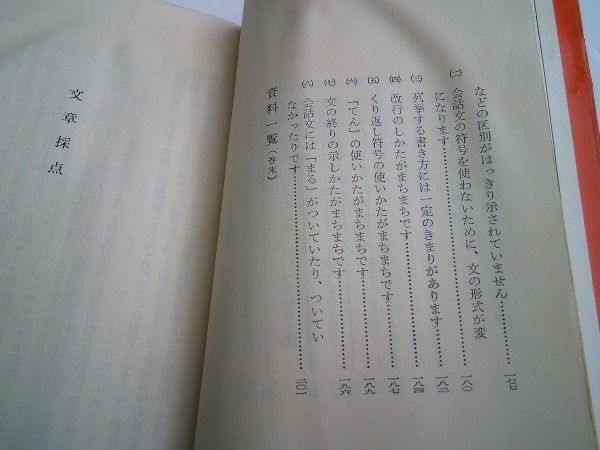 などの区別がはっきり示されていません……………一七七
㈡ 会話文の符号を使わないために、文の形式が変
になります……………一八〇
㈢ 列挙する書き方には一定のきまりがあります……………一八二
㈣ 改行のしかたがまちまちです……………一八四
㈤ くり返し符号の使いかたがまちまちです……………一八七
㈥ 「てん」の使いかたがまちまちです……………一八九
㈦ 文の終りの示しかたがまちまちです……………一九六
㈧ 会話文には「まる」がついていたり、ついてい
なかったりです……………二〇一
資料一覧（巻末）
文章採点